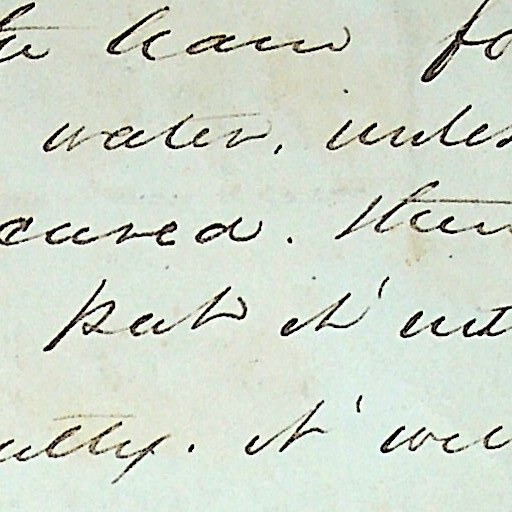 ham fo
water, unles
cured. then
put it int
ully. it wil